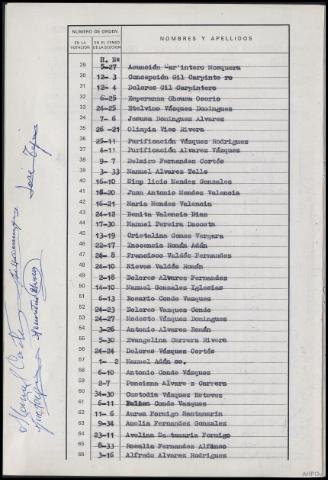 NUMERO DE ORDEN
EN LA VOTACION
EN EL CENSO DE LA SECCION
NOMBRES Y APELLIDOS
H. Nº
29 5-27 Asunción Car'intero Mosquera
30 12- 3 Concepción Gil Carpinte ro
31 12- 4 Dolores Gil Carpintero
32 6-25 Esperanza Osorio
33 24-25 Etelvina Vázquez Domínguez
34 7- 6 Jesusa Domínguez Alvares
35 26 -21 Olimpia Vico Rivera
36 25-11 Purificación Vázquez Rodrigues
37 4-11 Purificación Alvares Vázquez
38 9- 7 Delmiro Fernandez Cortés
39 3- 33 Manuel Alvarez Tello
40 16-10 Simp licio Mendez Gonzales
41 16-20 Juan Antonio Mendez Valencia
42 16-21 Maria Mendez Valencia
43 24-12 Benita Valencia Dias
44 17-30 Manuel Pereira Dacosta
45 13-19 Cristalina Gomez Vergara
46 22-17 Inocencia Román Adán
47 24- 8 Francisco Valdés Fernandez
48 24-10 Nieves Valdés Román
49 2-16 Dolores Alvarez Fernandez
50 14-10 Manuel Gonzalez Iglesias
51 6-13 Rosario Conde Vazquez
52 24-23 Dolores Vazquez Conde
53 24-27 Modesto Vázquez Domínguez
54 3-26 Antonio Alvarez Román
55 5-30 Evangelina Carrera Rivera
56 24-24 Dolores Vázquez Cortés
57 1- 2 Manuel Adán
58 6-10 Antonio Conde Vázquez
59 2-7 Pensiana Alvare s Carrera
60 24-30 Custodia Vázquez Esteves
61 6-11 Conde Vasques
62 11- 6 Aurea Formigo Santamaria
63 9-34 Amelia Fernandez Gonzalez
64 23-11 Avelina Santamaria Formigo
65 8-33 Rosalia Fernandez Alfonso
66 3-16 Alfredo Alvarez Rodriguez